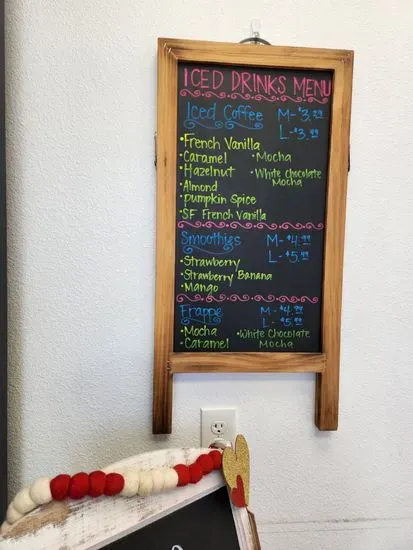 ICED DRINKS MENU
Iced Coffee M-$3.29
L-$3.99
•French Vanilla
•Caramel •Mocha
•Hazelnut •White Chocolate Mocha
•Almond
•Pumpkin Spice
•SF French Vanilla
Smoothies M-$4.99
L-$5.49
•Strawberry
•Strawberry Banana
•Mango
Frappe M-$4.99
L-$5.99
•Mocha •White Chocolate Mocha
•Caramel